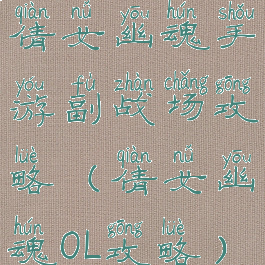 qiàn nǚ yōu hún shǒu
倩女幽魂手
yóu fù zhàn chǎng gōng
游副战场攻
lüè qiàn nǚ yōu
略(倩女幽
hún gōng lüè
魂OL攻略)